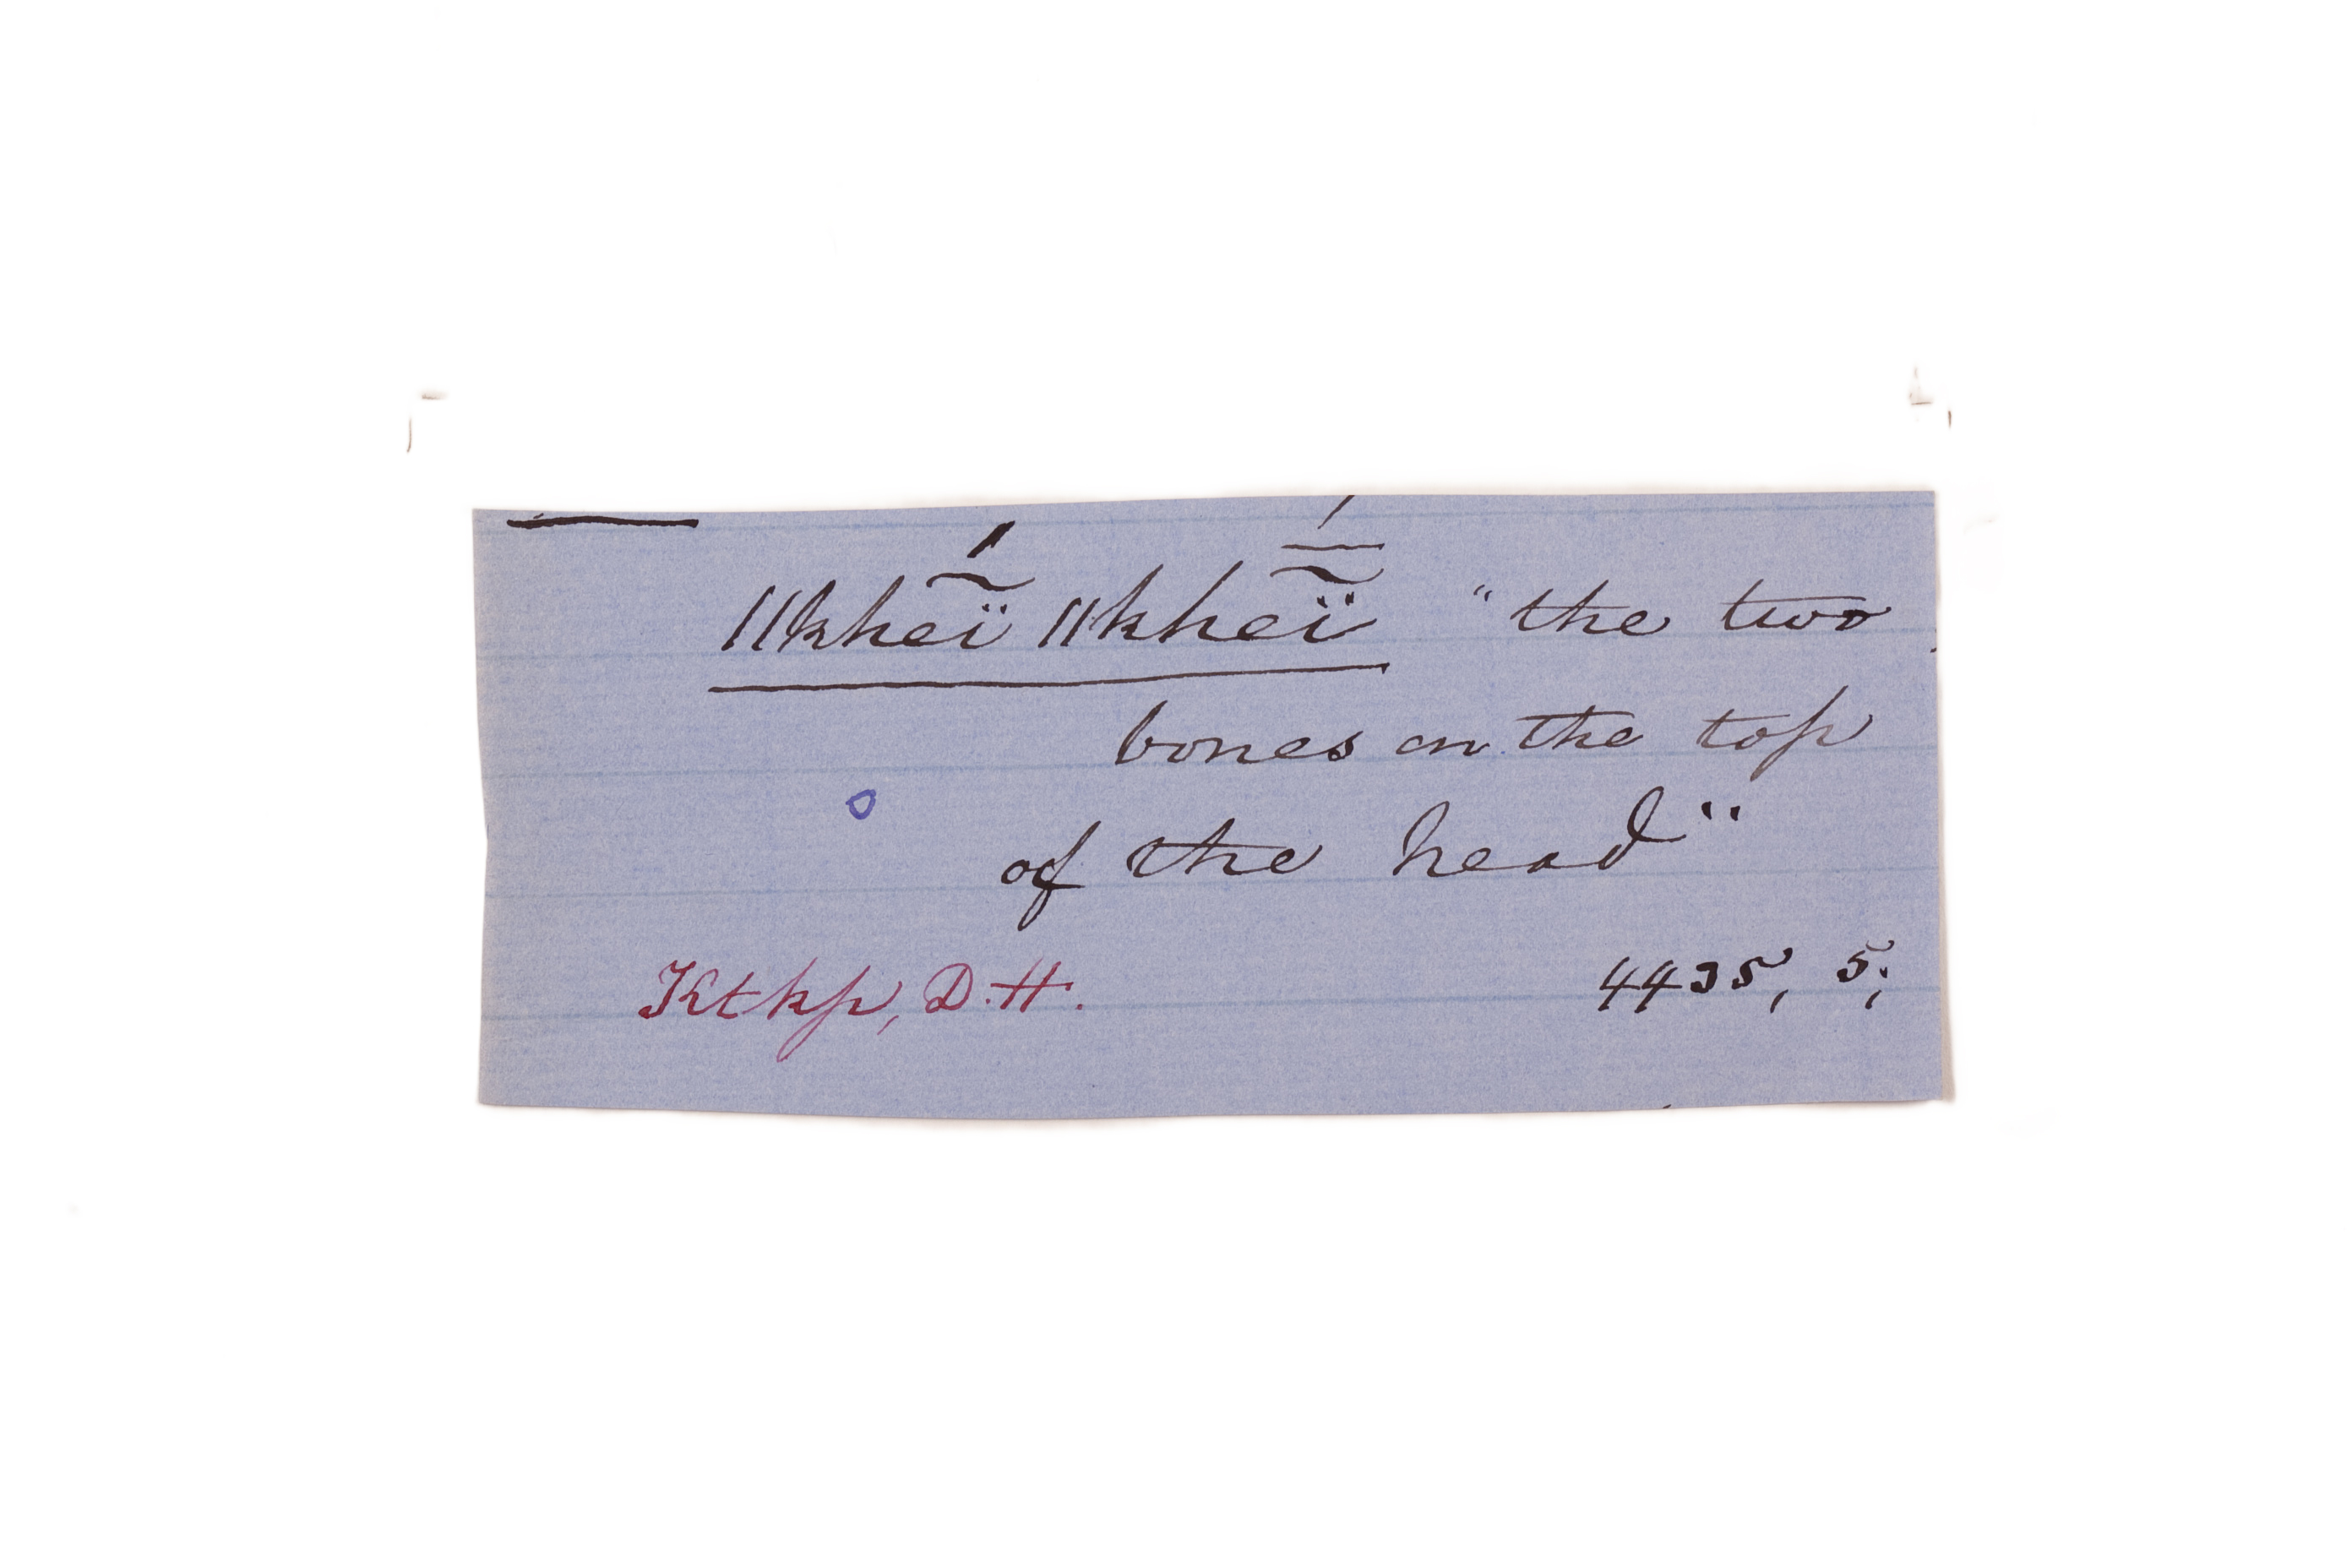 ǁkhe͠ḯ ǁkhe͠ḯ̄ "the two
bones on the top
of the head"
Ktkp, D.H. 4435, 5;